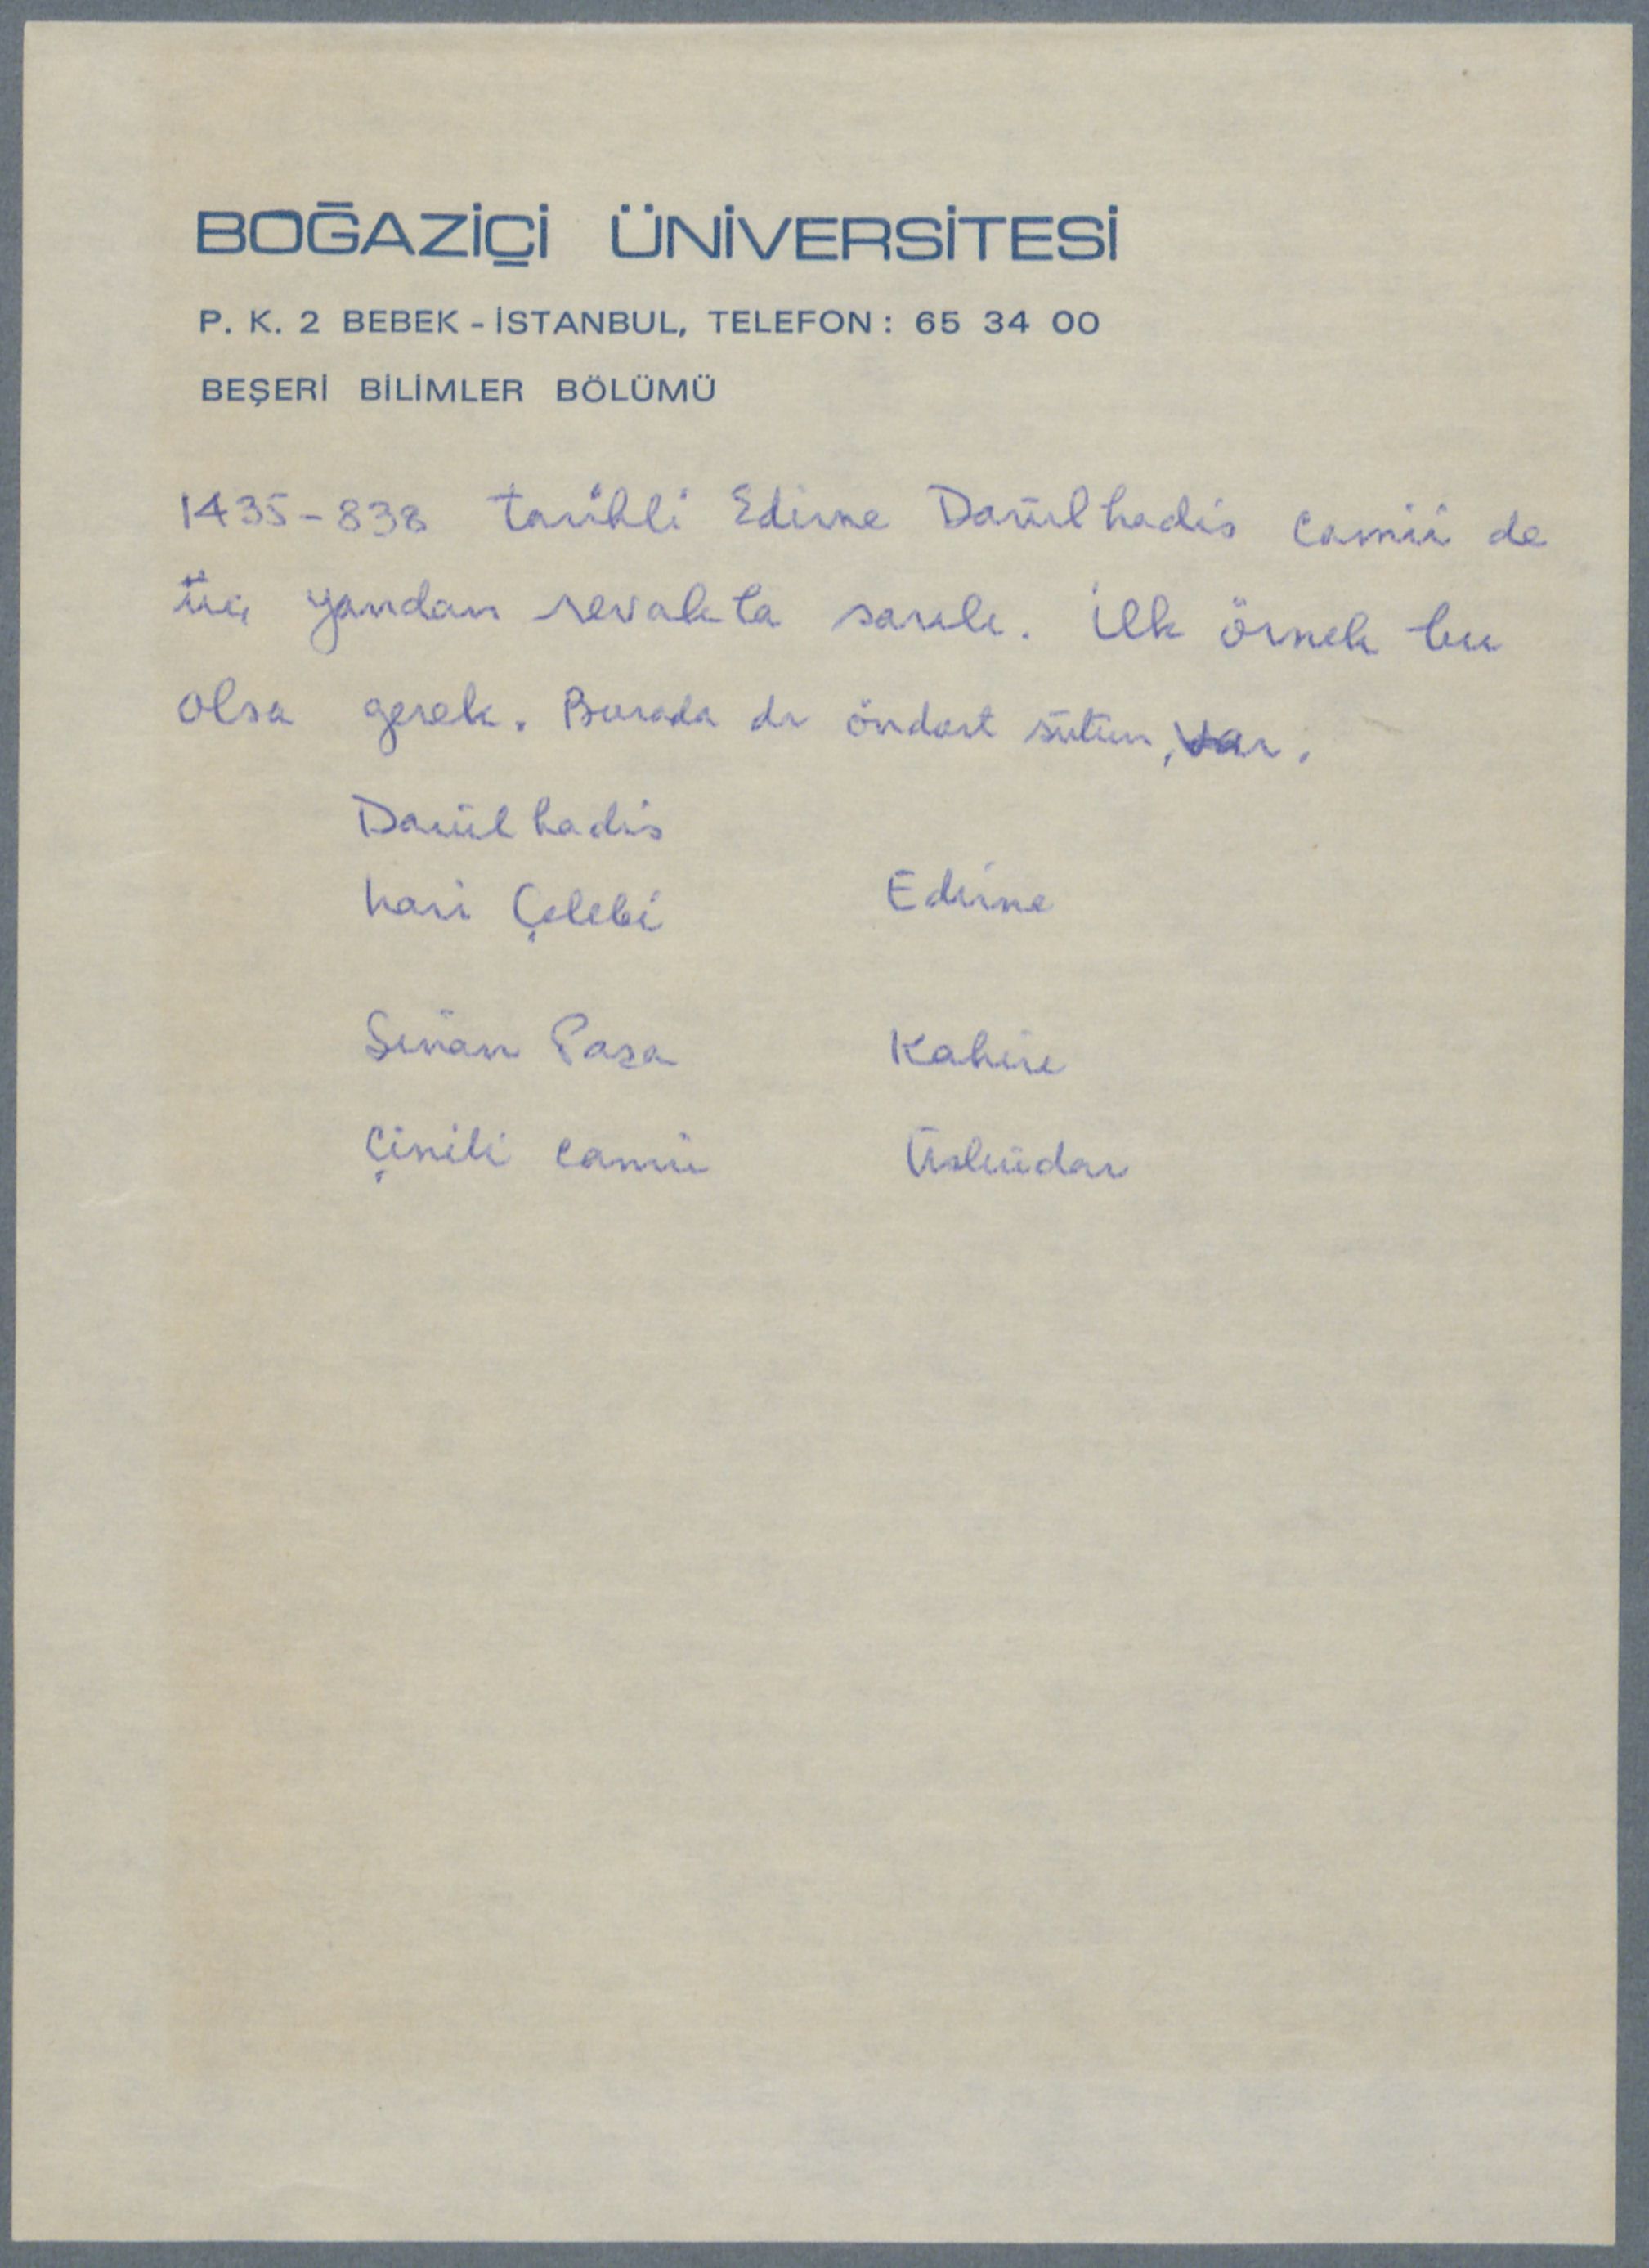 BOĞAZİÇİ ÜNİVERSİTESİ
P. K. 2 BEBEK - İSTANBUL, TELEFON : 65 34 00
BEŞERİ BİLİMLER BÖLÜMÜ
1435-838 tarihli Edirne Darülhadis Camii de
üç yandan revakla sarılı. İlk örnek bu
olsa gerek. Burada da öndört sütun, var.
Darülhadis
Çelebi Edirne
Sinan Paşa Kahire
Çinili Camii Üsküdar